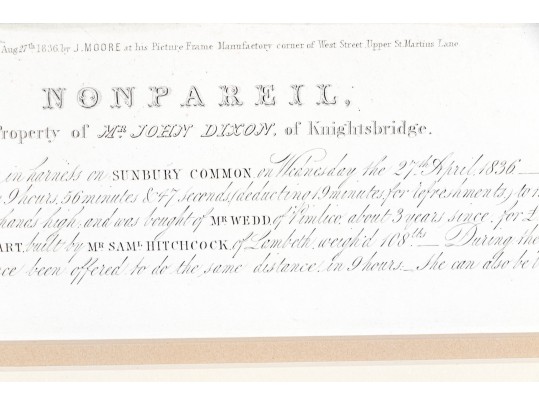 Aug 27th 1836 by J. MOORE at his Picture Frame Manufactory corner of West Street, Upper St Martins Lane
NONPAREIL,
Property of Mr. JOHN DIXON, of Knightsbridge.
in harness on SUNBURY COMMON, on Wednesday the 27th April, 1836 —
9 hours, 56 minutes & 47 seconds, (deducting 19 minutes, for refreshments,) to
hands high, and was bought of MR WEDD, of Pimlico, about 3 years since, for £
ART, built by MR SAML HITCHCOCK, of Lambeth, weigh'd 108 lbs — During the
ce been offered to do the same distance, in 9 hours. — She can also be